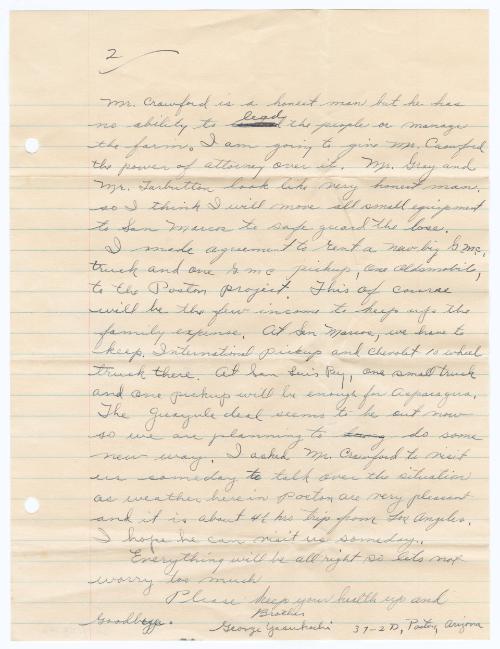 2
Mr. Crawford is a honest man but he has
no ability to lead the people or manage
the farm. I am going to give Mr. Crawford
the power of attorney over it. Mr. Gray and
Mr. Tarbutton look like very honest man.
so I think I will move all small equipment
to San Marcos to safe guard the lose.
I made agreement to rent a new big G.M.C.
truck and one G M C pickup, one oldsmobile,
to the Poston project. This of course
will be the few income to keep up the
family expense. At San Marcos, we have to
keep International pickup and chevolet 10 wheel
truck there. At San Luis Rey, one small truck
and one pickup will be enough for Asparagus.
The Guayule deal seems to be out now
so we are planning to do some
new way. I asked Mr. Crawford to visit
us someday to talk over the situation
as weather here in Poston are very pleasant
and it is about hrs trip from Los Angeles.
I hope he can visit us someday.
Everything will be all right so lets not
worry too much
Please keep your health up and
Goodbye. Brother
George Yasukochi 37-2 D, Poston, Arizona